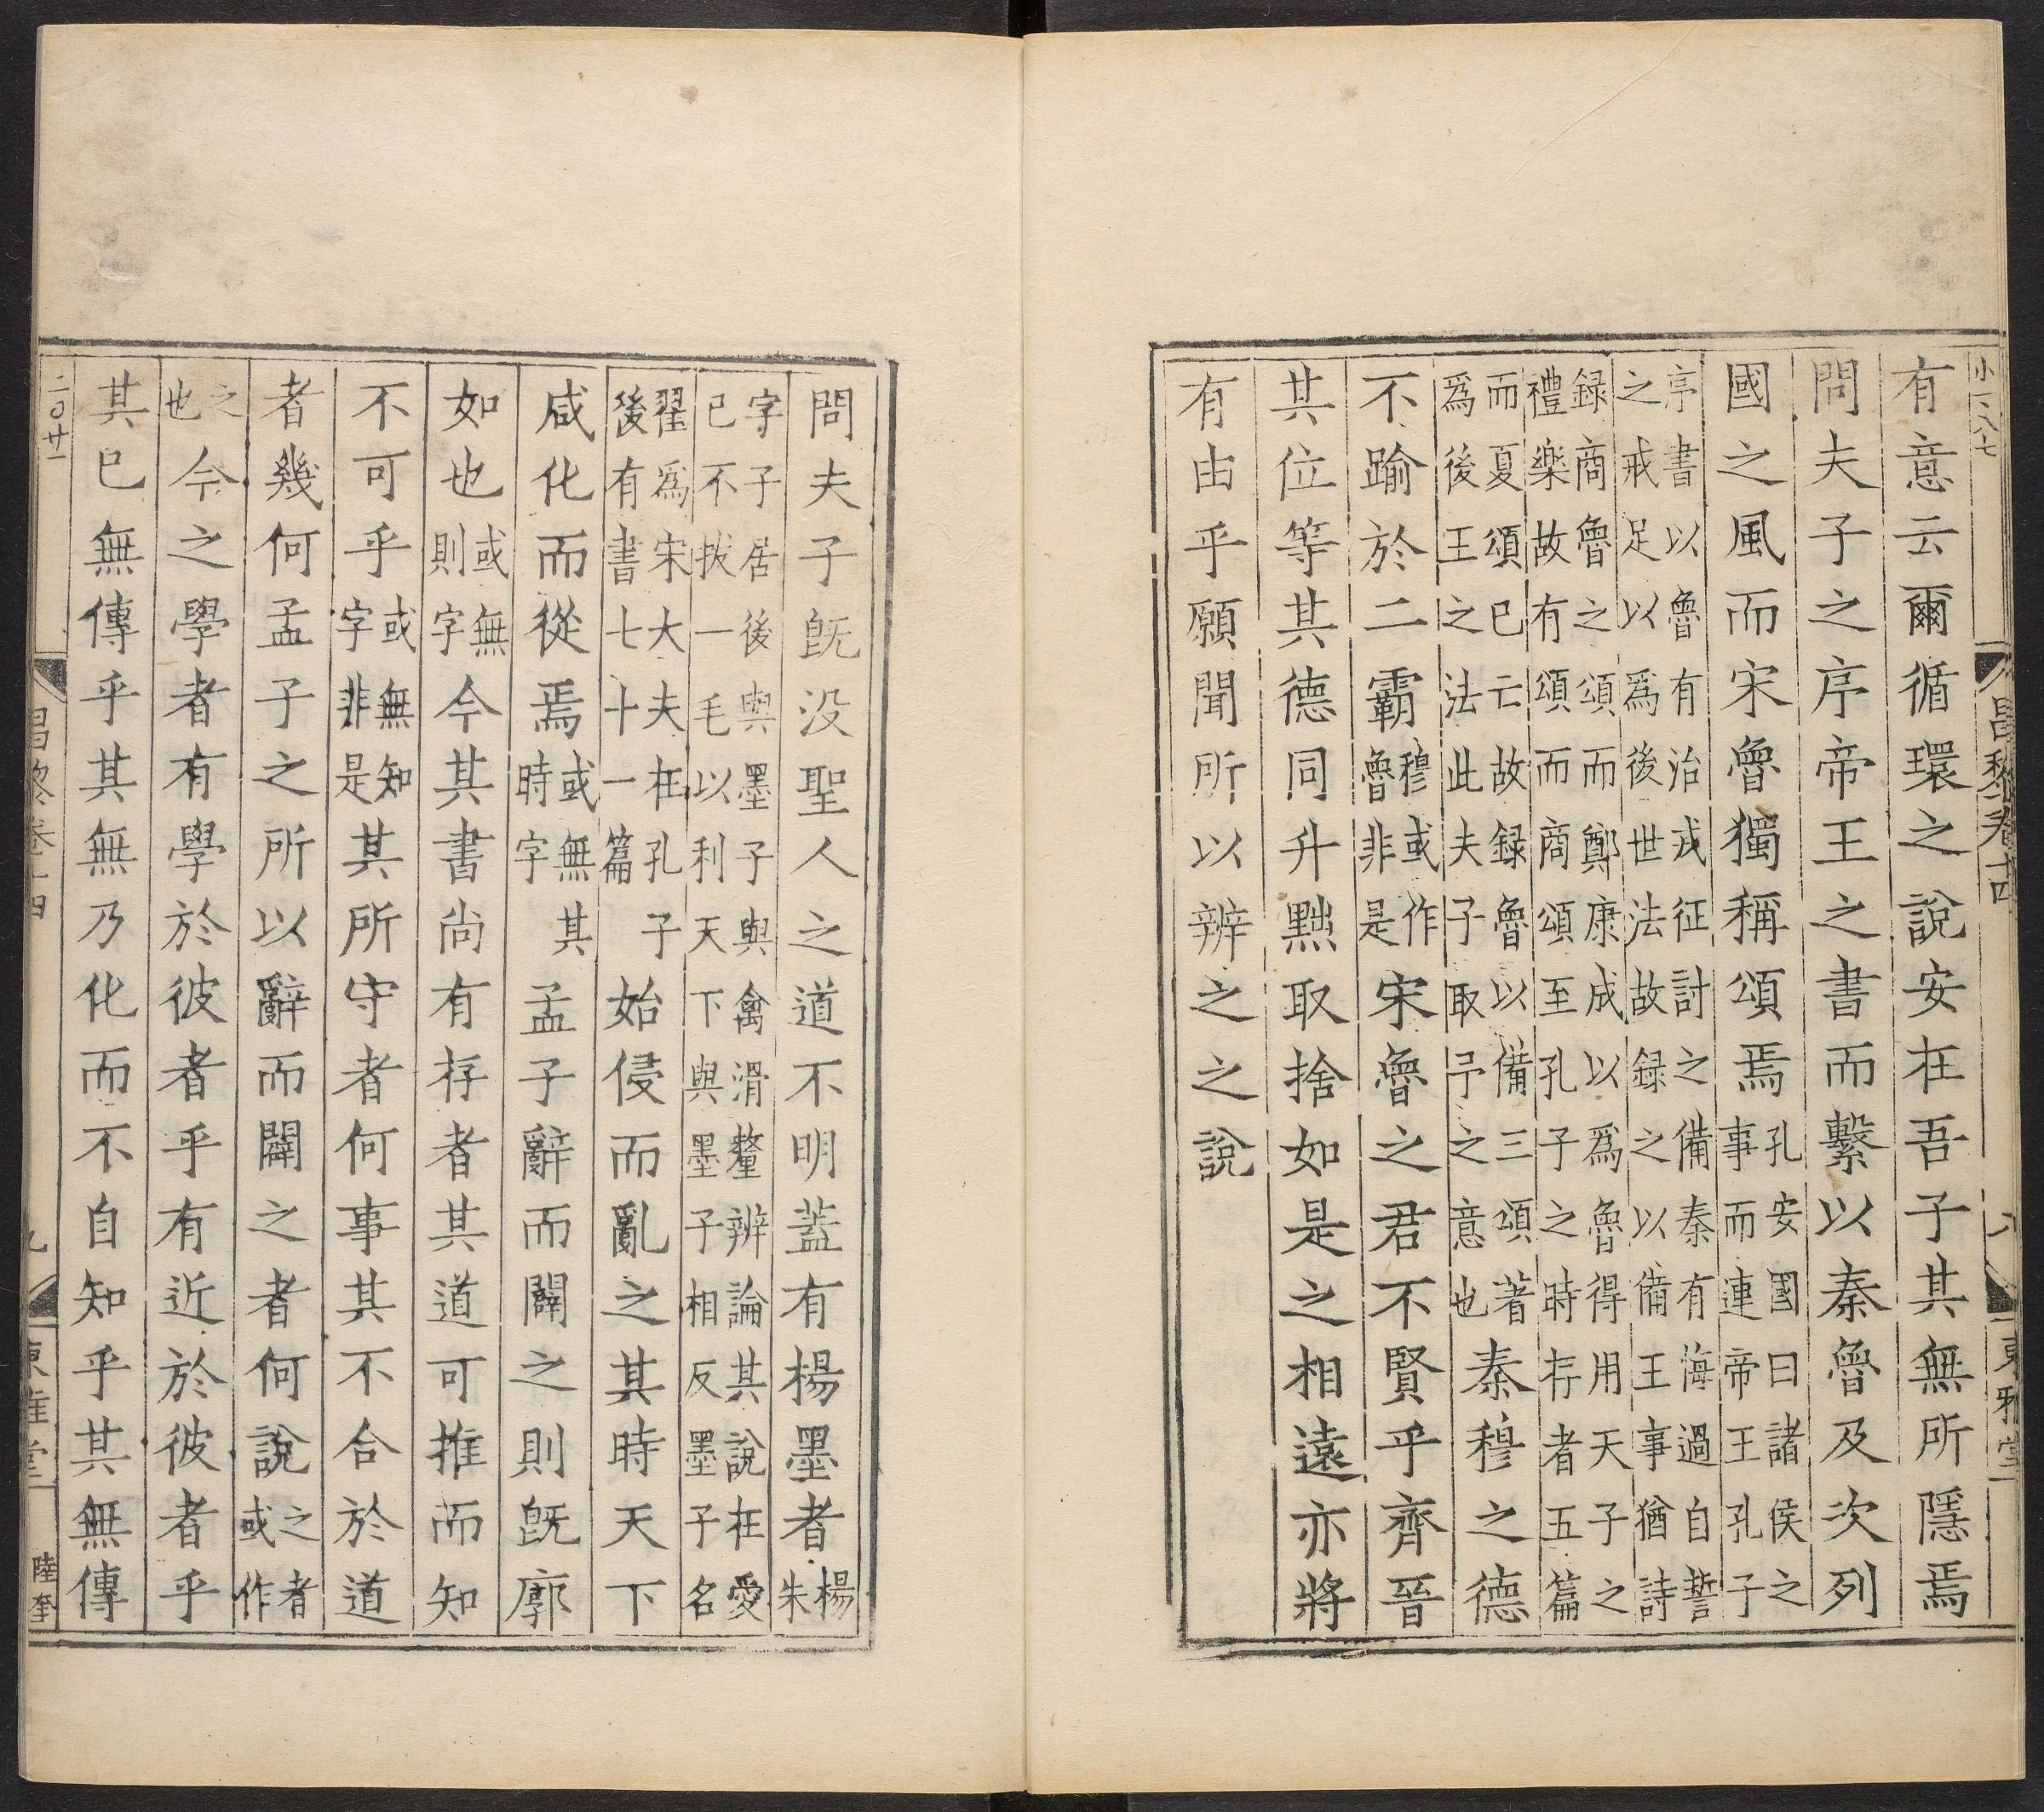 小一八七
昌黎卷十四
八
東雅堂
有意云爾循環之說安在吾子其無所隱焉
問夫子之序帝王之書而繫以秦魯及次列
國之風而宋魯獨稱頌焉孔安國曰諸侯之
事而連帝王孔子
序書以魯有治戎征討之備秦有悔過自誓
之戒足以爲後世法故録之以備王事猶詩
録商魯之頌而鄭康成以爲魯得用天子之
禮樂故有頌而商頌至孔子之時存者五篇
而夏頌已亡故録魯以備三頌著
爲後王之法此夫子取予之意也秦穆之德
不踰於二霸穆或作
魯非是宋魯之君不賢乎齊晉
其位等其德同升黜取捨如是之相遠亦將
有由乎願聞所以辨之之說
問夫子旣没聖人之道不明蓋有楊墨者楊
朱
字子居後與墨子與禽滑釐辨論其說在愛
已不拔一毛以利天下與墨子相反墨子名
翟爲宋大夫在孔子
後有書七十一篇始侵而亂之其時天下
咸化而從焉或無其
時字孟子辭而闢之則旣廓
如也或無
則字今其書尚有存者其道可推而知
不可乎或無知
字非是其所守者何事其不合於道
者幾何孟子之所以辭而闢之者何說之者
或作
之
也今之學者有學於彼者乎有近於彼者乎
其已無傳乎其無乃化而不自知乎其無傳
二〇廿一
昌黎卷十四
九
東雅堂
陸奎